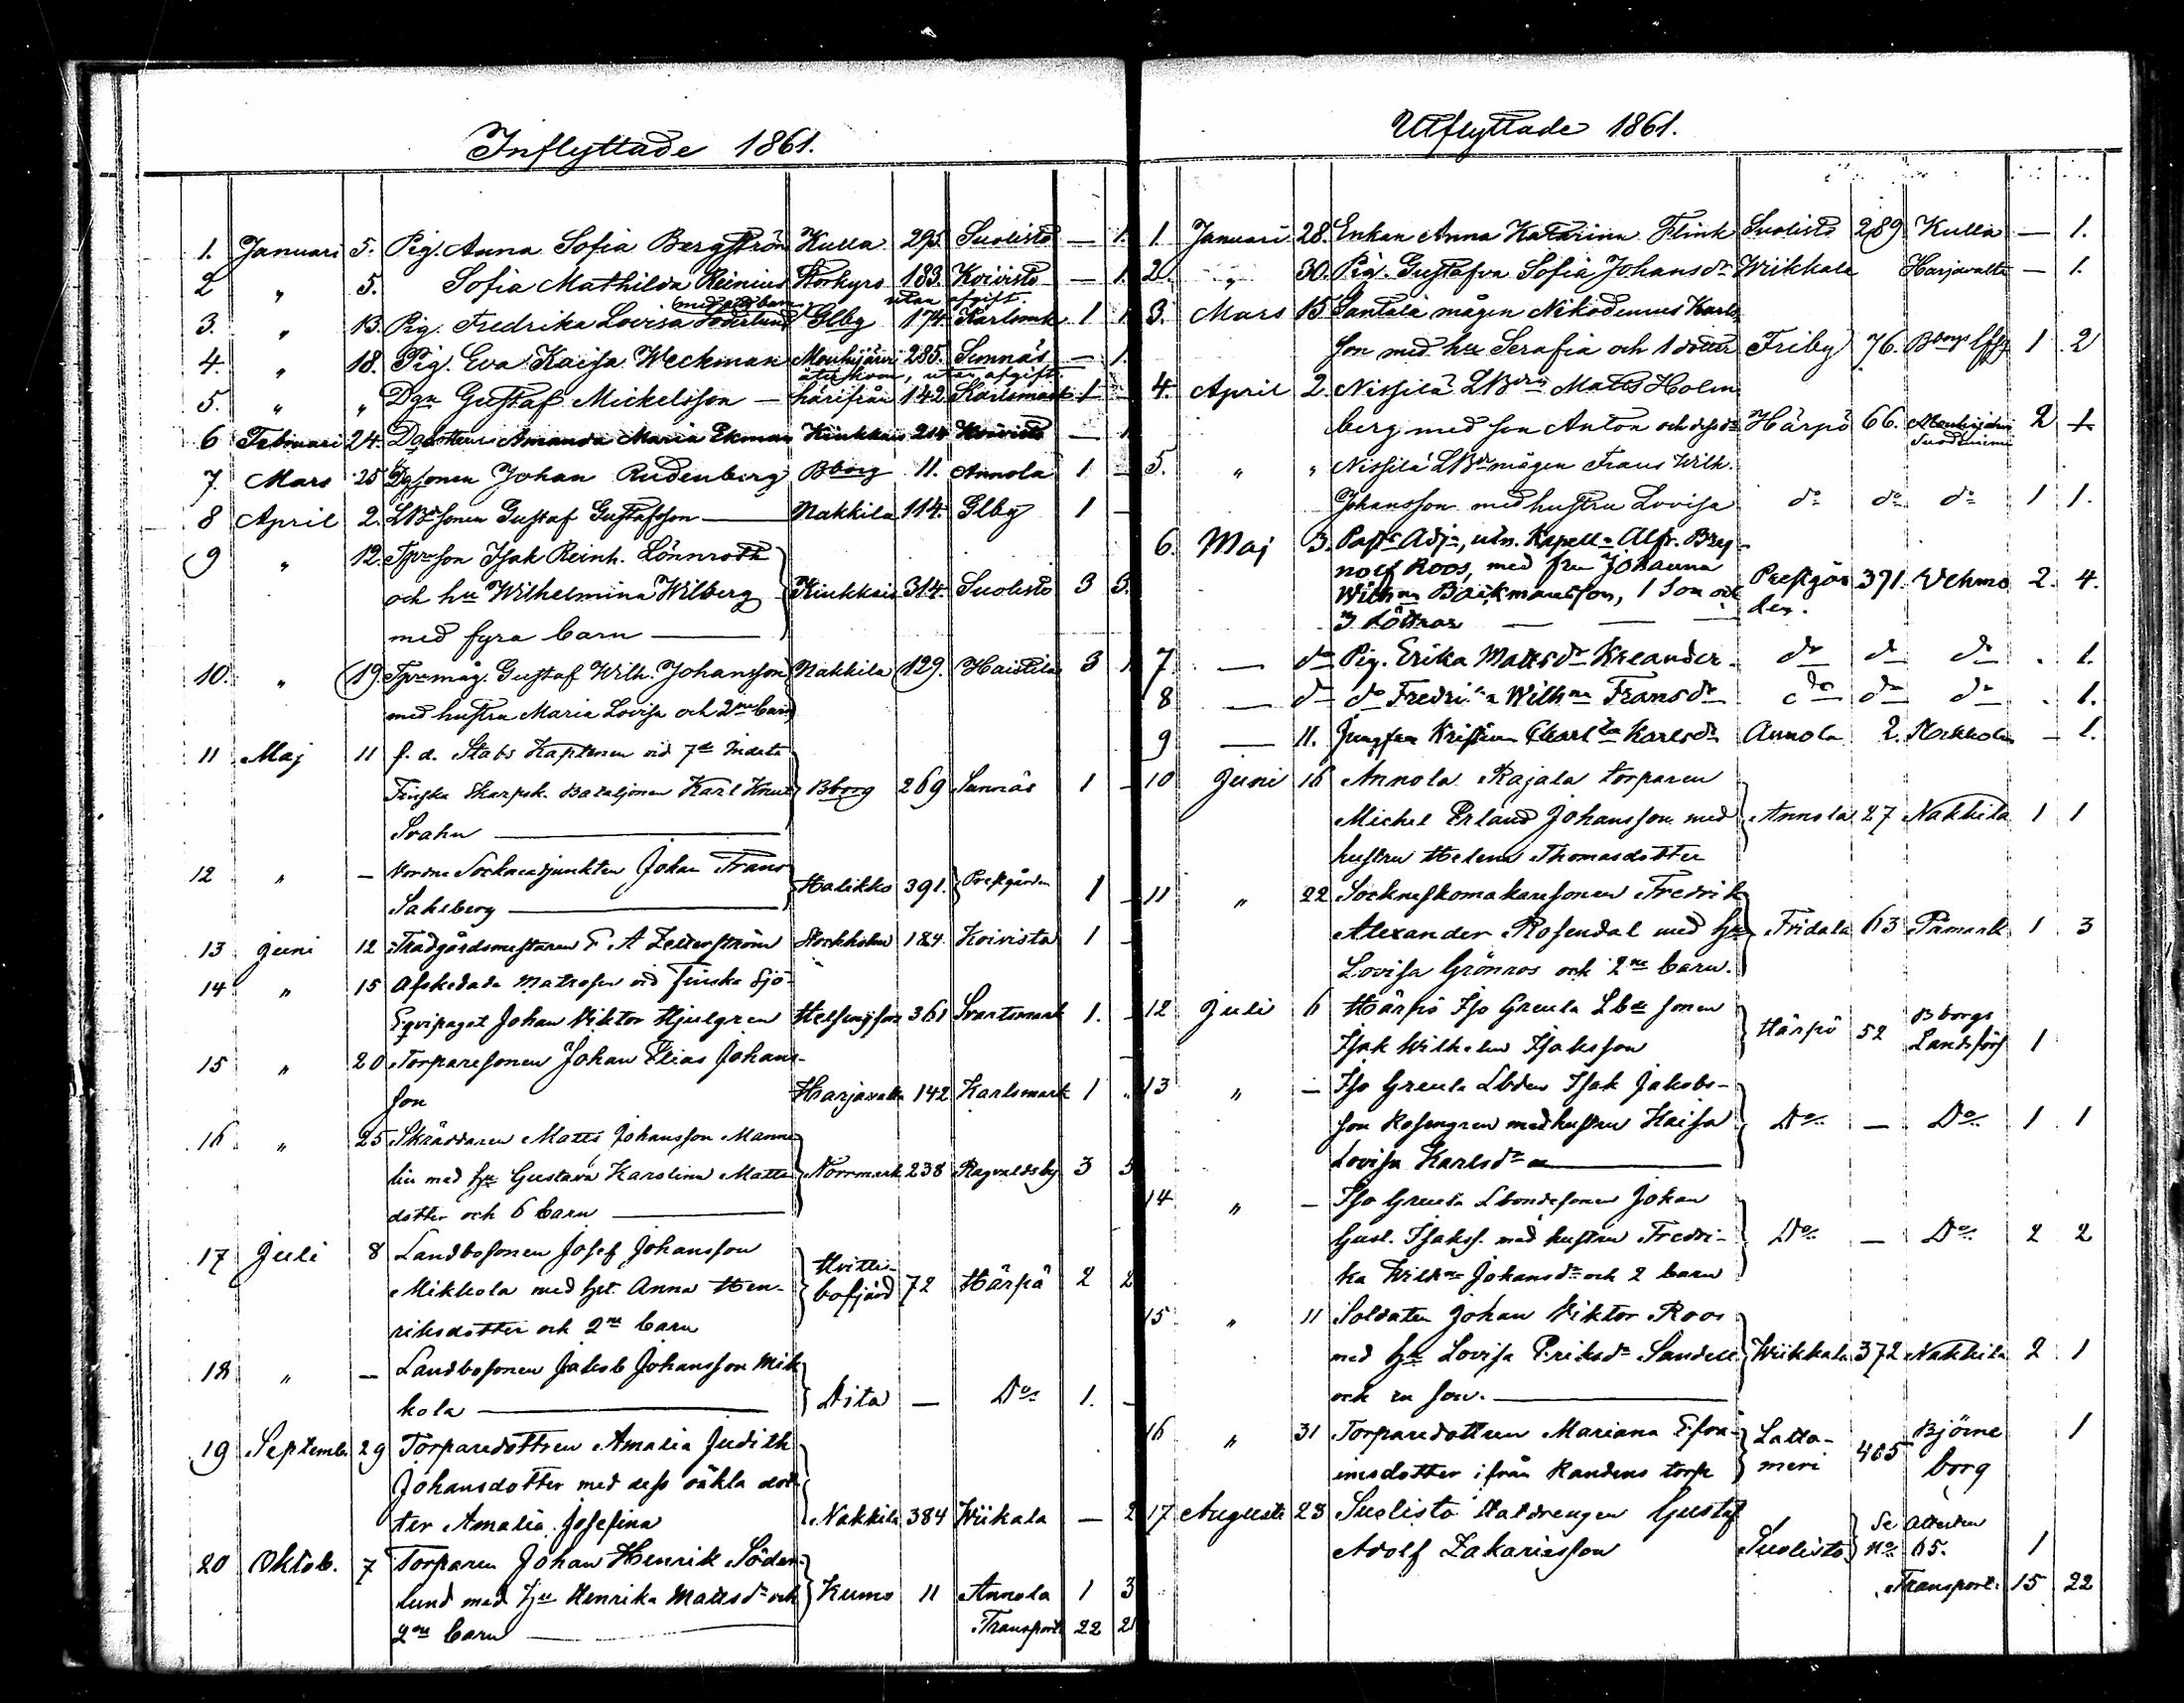 Inflyttade 1861.
1. Januari 5. Pig. Anna Sofia Bergström Kulla 295. Suolisto — 1.
2 " 5. Sofia Mathilda Reinius Storkyro 183. Koivisto — 1.
med ett barn utan afgift.
3. " 13. Pig. Fredrika Lovisa Söderlund Glby 174 Karlsmk 1 1
4. " 18. Pig. Eva Kaisa Weckman Mouhijärvi 285. Sunnäs — 1.
återkom, utan afgift.
5. " " Dgn Gustaf Mickelsson — härifrån 142 Karlsmark 1 —
6 Februari 24. Dgdottren Amanda Maria Ekman Kiukkais 214 Koivisto — 1
7. Mars 25 Dgsonen Johan Rudenberg Bborg 11. Annola 1 —
8 April 2. LBdsonen Gustaf Gustafsson — Nakkila 114. Glby 1 —
9 " 12. Tprson Isak Reinh. Lönnroth
och hu Wilhelmina Wilberg Kiukkais 314. Suolisto 3 3.
med fyra barn —
10. " 19. Tprmåg. Gustaf Wilh. Johansson Nakkila 129. Haistila 3 1
med hustru Maria Lovisa och 2ne barn
11 Maj 11 f. d. Stabs Kaptenen vid 7de Indelta
Finska Skarpsk. Bataljonen Karl Knut Bborg 269 Sunnäs 1 —
Svahn —
12 " — Vordne Sockneadjunkten Johan Frans
Sahlberg — Halikko 391. Prestgården 1 —
13 Juni 12 Trädgårdsmästaren F. A Zetterström Stockholm 184 Koivisto 1 —
14 " 15 Afskedade Matrosen vid Finska Sjö-
Eqvipaget Johan Viktor Hjulgren Helsingfors 361 Svartsmark 1. —
15 " 20 Torparesonen Johan Elias Johans-
son Harjavalta 142 Karlsmark 1 "
16 " 25 Skräddaren Matts Johansson Manne-
lin med hu Gustava Karolina Matts- Norrmark 238 Ragvaldsby 3 5
dotter och 6 barn —
17 Juli 8 Landbosonen Josef Johansson
Mikkola med hu. Anna Hen- Hvittis-
bofjärd 72 Härpö 2 2
riksdotter och 2ne barn
18 " — Landbosonen Jakob Johansson Mik
kola — Dito — Do 1. —
19 Septemb. 29 Torparedottren Amalia Judith
Johansdotter med dess oäkta dot-
ter Amalia Josefina Nakkila 384 Wiikala — 2
20 Oktob. 7 Torparen Johan Henrik Söder-
lund med hu Henrika Mattsdr och Kumo 11 Annola 1 3
2ne barn — Transport 22 21
Utflyttade 1861.
1. Januari 28. Enkan Anna Katarina Flink Suolisto 289 Kulla — 1.
2. " 30. Pig. Gustafva Sofia Johansdr Wiikkala Harjavalta — 1.
3. Mars 15 Santala mågen Nikodemus Karls
son med hu Serafia och 1 dotter Friby 76. Bborgs lfsg 1 2
4. April 2. Nissilä LBdn Matts Holm
berg med son Anton och dess dr Härpö 66. Mouhijärvi 2 1
Suodeniemi
5. " " Nissilä LBdmågen Frans Wilh.
Johansson med hustru Lovisa do do do 1 1.
6. Maj 3. Past. Adj., utn. Kapelln Alfr. Bry-
nolf Roos, med fru Johanna
Wilhna Bäckmansson, 1 Son och Prestgår
den. 391. Vehmo 2. 4.
3 döttrar — — —
7 — do Pig. Erika Mattsdr Kreander do do do . 1.
8 — do do Fredrika Wilhna Fransdr do do do . 1.
9 — 11. Jungfru Kristina Charlta Karlsdr Annola 2. Stockholm — 1.
10 Juni 16 Annola Rajala torparen
Michel Erland Johansson med Annola 27 Nakkila 1 1
hustru Helena Thomasdotter
11 " 22 Sockneskomakaresonen Fredrik
Alexander Rosendal med hu Fridala 63 Påmark 1 3
Lovisa Grönroos och 2ne barn.
12 Juli 6 Härpö Iso Greula Lbdsonen
Isak Wilhelm Isaksson Härpö 52 Bborgs
Landsförs 1
13 " — Iso Greula Lbden Isak Jakobs-
son Rosengren med hustru Kaisa Do — Do 1 1
Lovisa Karlsdr —
14 " — Iso Greula Lbondesonen Johan
Gust. Isakss. med hustru Fredri- Do — Do 2 2
ka Wilhna Johansdr och 2 barn
15 " 11 Soldaten Johan Viktor Roos
med hu Lovisa Eriksdr Sandell Wiikkala 372 Nakkila 2 1
och en son. —
16 " 31 Torparedottren Mariana Efra-
imsdotter ifrån Randens torp Latto-
meri 405 Björne
borg 1
17 Augusti 23 Suolisto Staldrengen Gustaf
Adolf Zakariasson Suolisto Se Attesten
No 65. 1
Transport 15 22